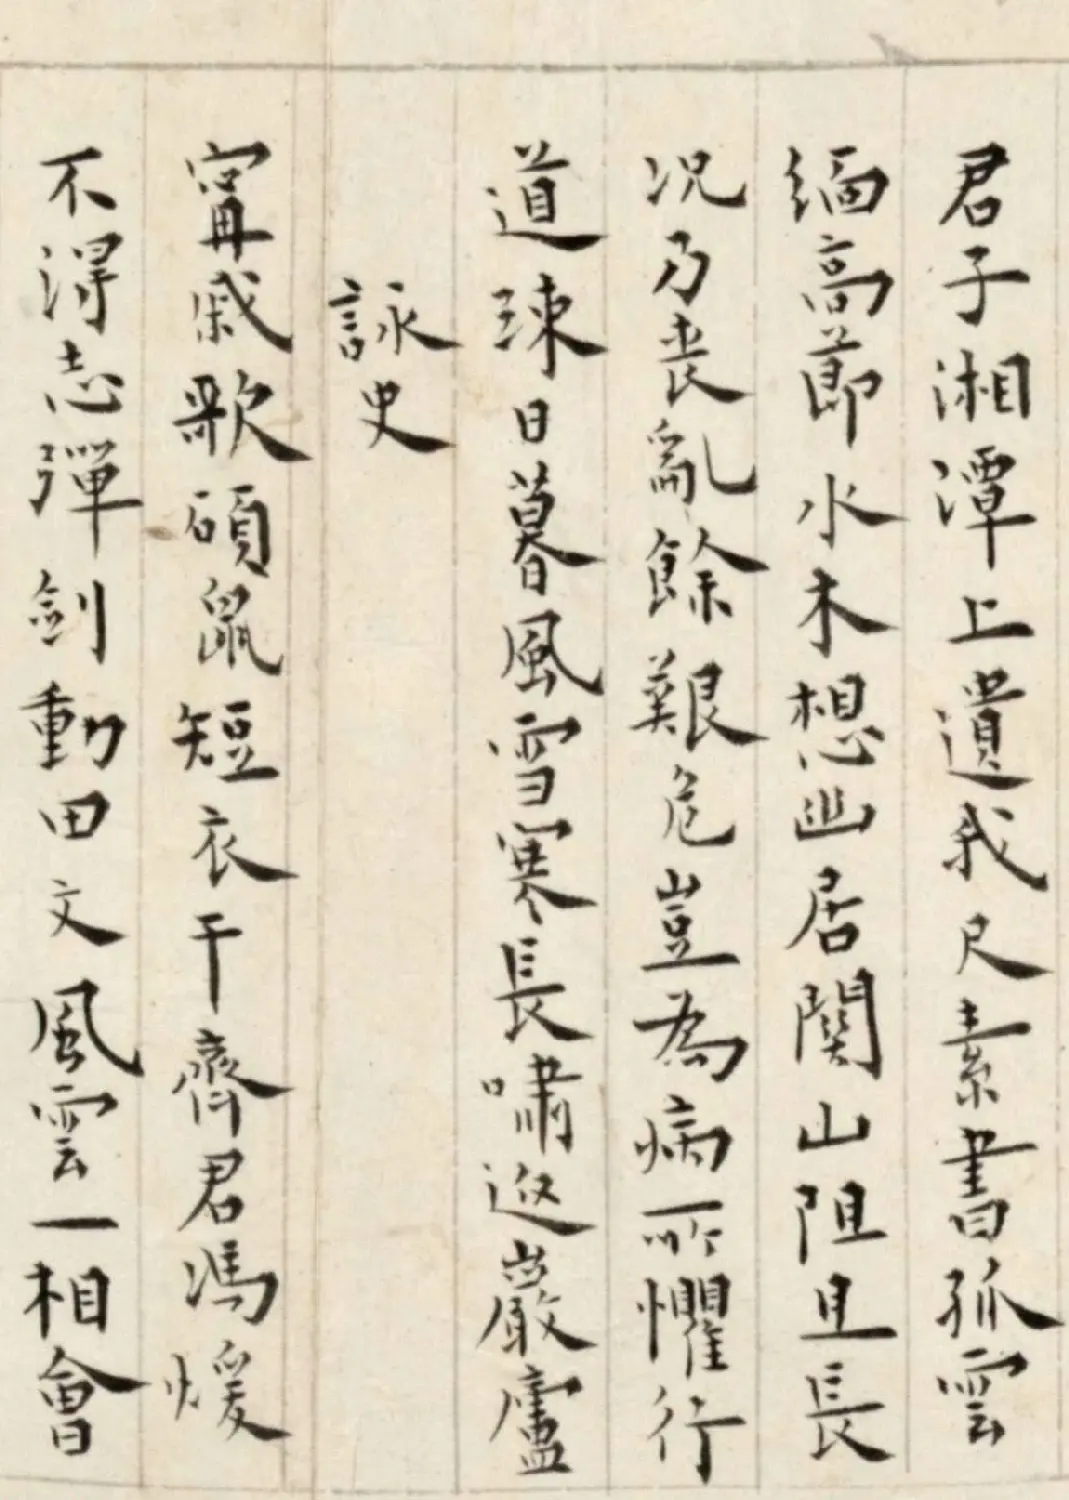 君子湘潭上遺我尺素書孤雲
緬高節水木想幽居關山阻且長
况乃喪亂餘艱危豈為病所懼行
道踈日暮風雪寒長嘯返巖廬
詠史
甯戚歌碩鼠短衣干齊君馮煖
不得志彈劍動田文風雲一相會